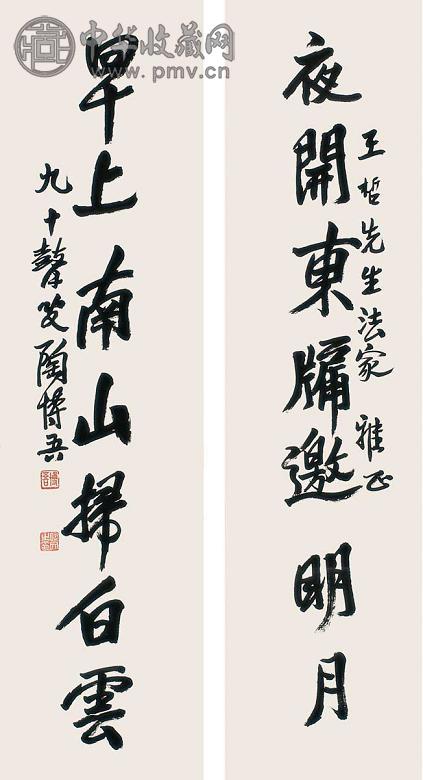 中华收藏网
www.pmv.cn
夜開東牖邀明月
王哲先生法家雅正
早上南山掃白雲
九十瞽叟陶博吾